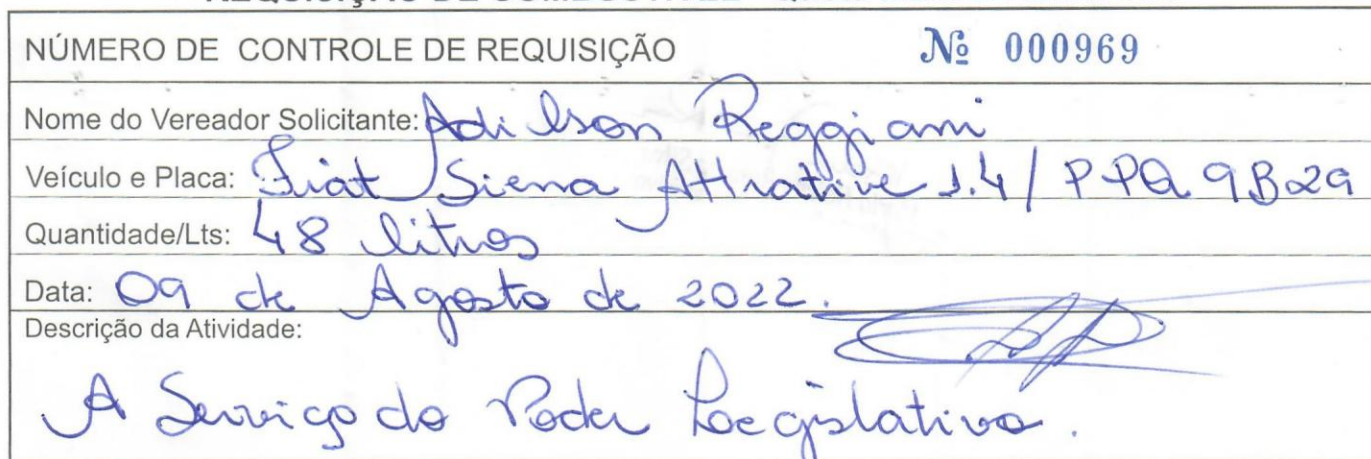 NÚMERO DE CONTROLE DE REQUISIÇÃO Nº 000969
Nome do Vereador Solicitante: Adilson Reggiani
Veículo e Placa: Fiat Siena Attrative 1.4 / PPQ 9B29
Quantidade/Lts: 48 litros
Data: 09 de Agosto de 2022.
Descrição da Atividade:
A Serviço do Poder Legislativo.